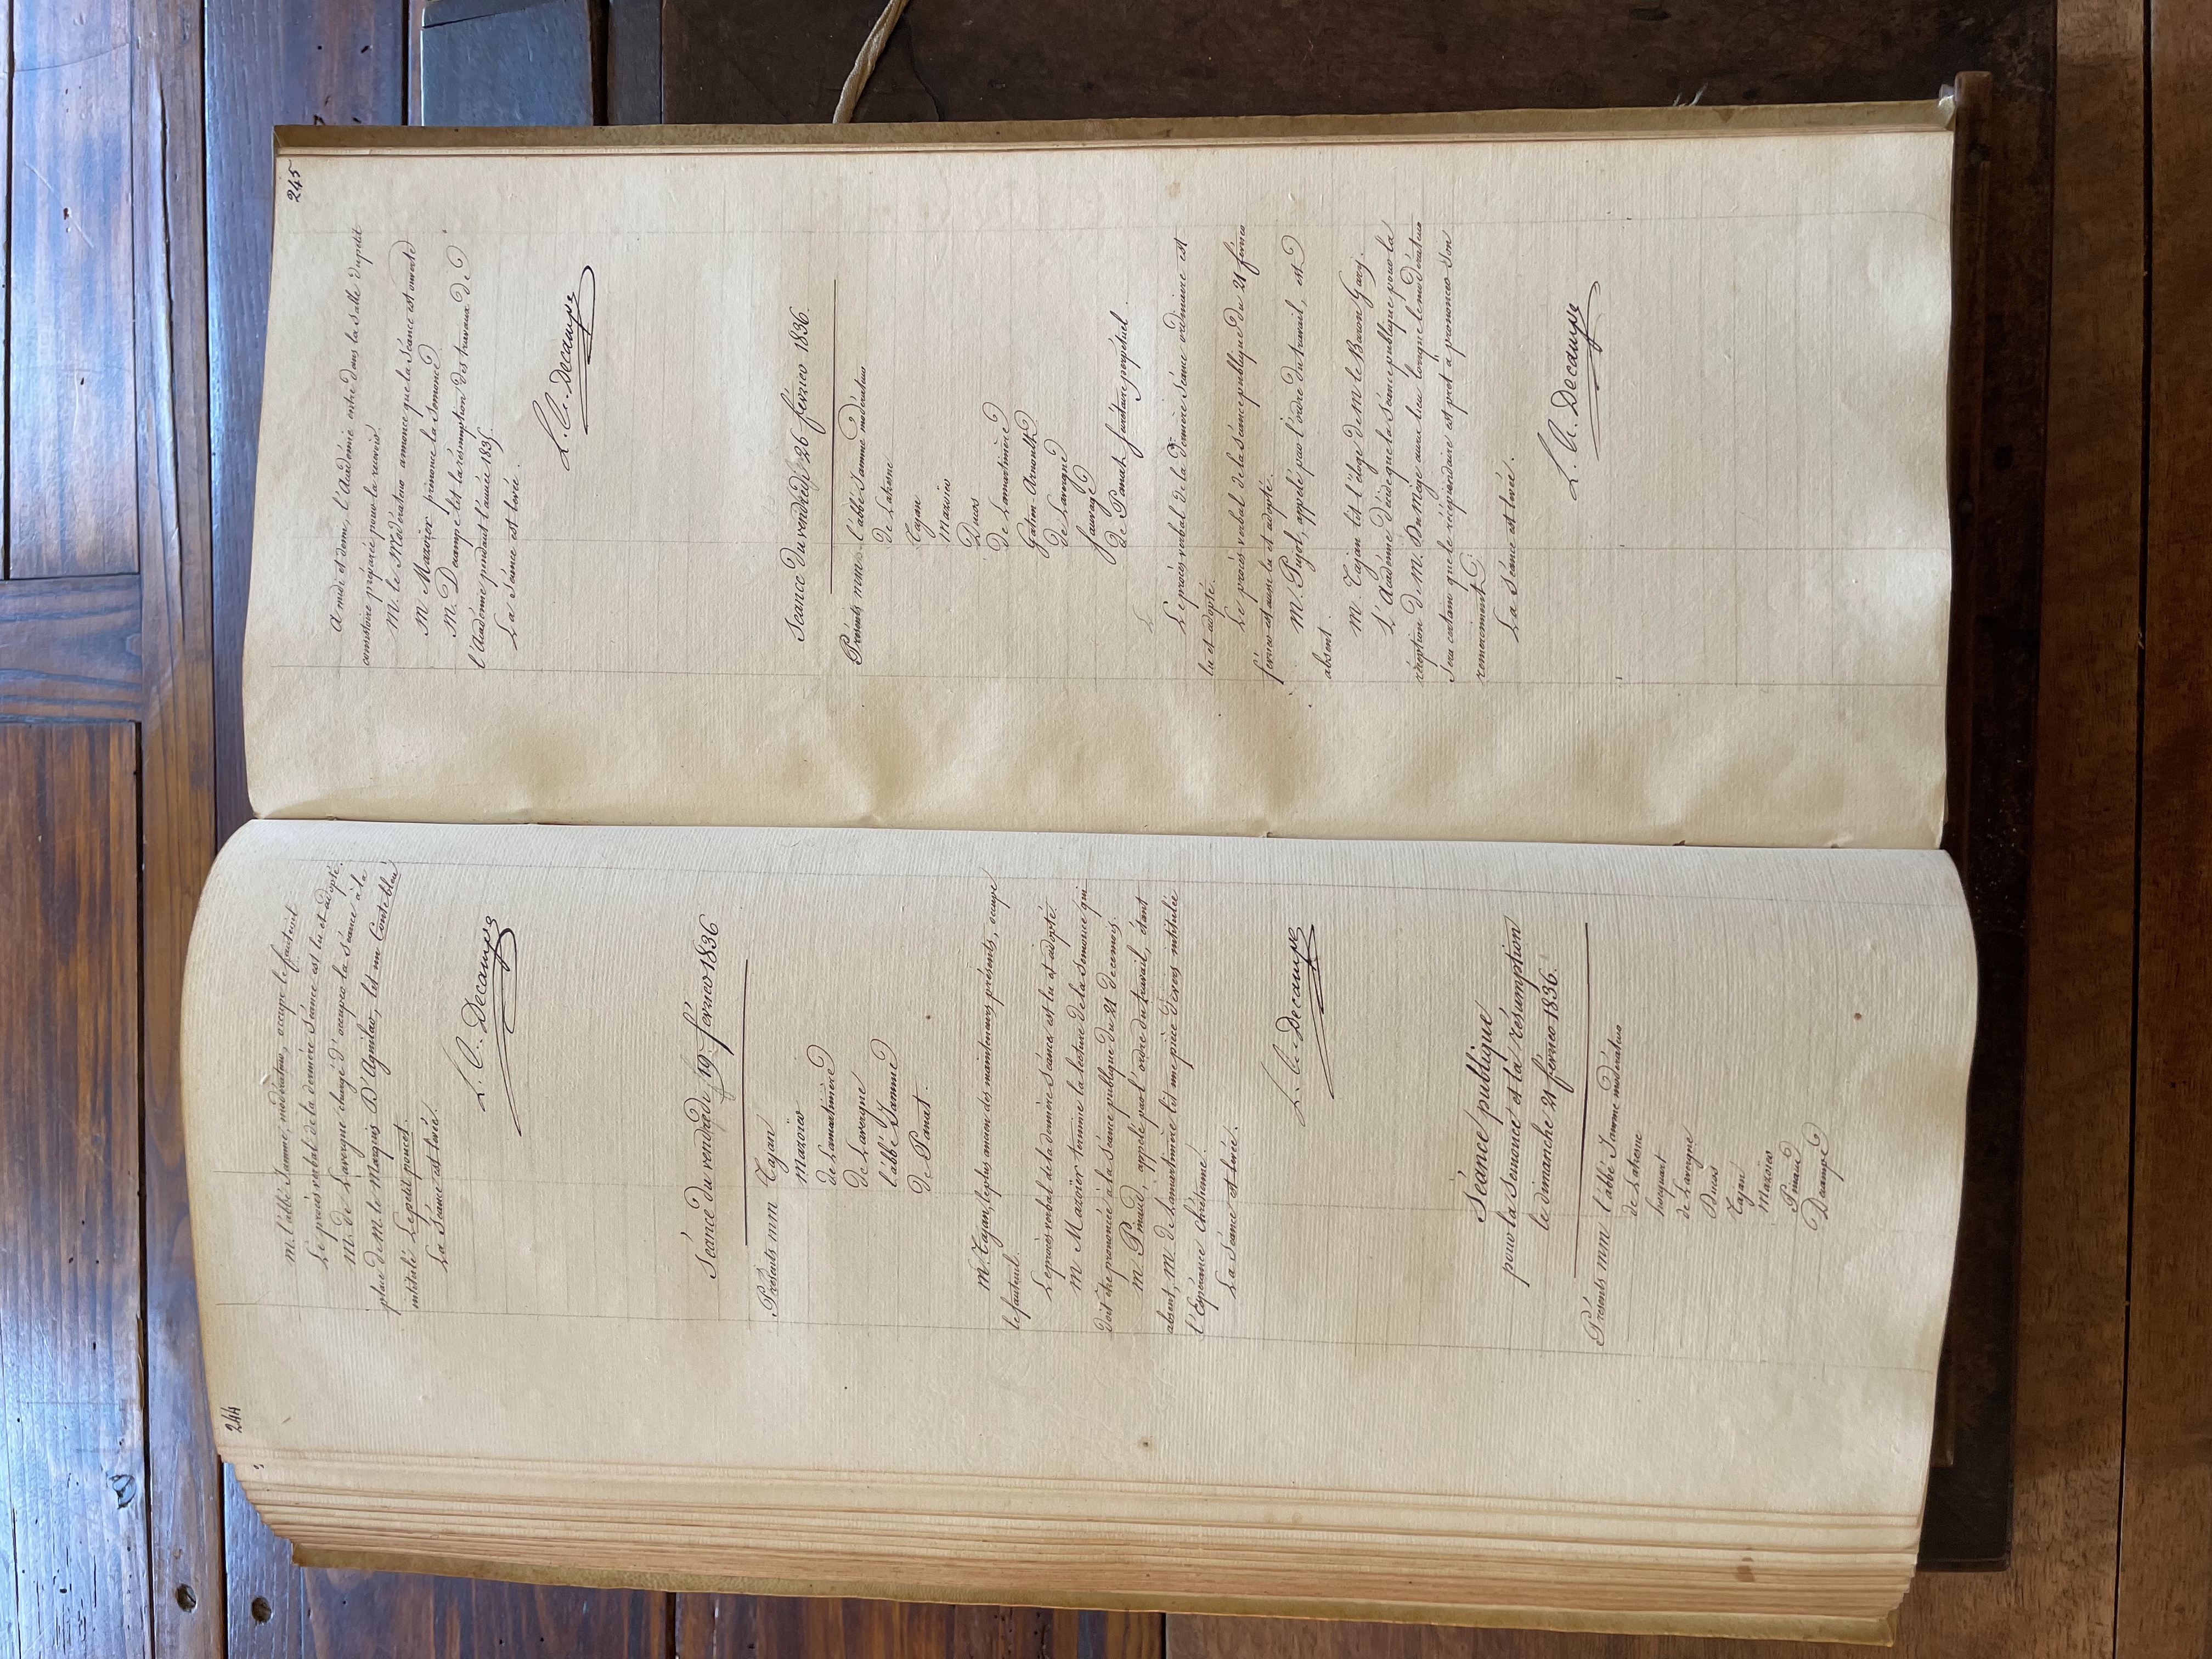 244
m. l'abbé Jamme, modérateur, occupe le fauteuil.
Le procès verbal de la dernière séance est lu et adopté.
M. de Lavergne chargé d'occuper la séance à la
place de M. le Marquis D'Aguilar, lit un Conte bleu
intitulé Le petit poucet.
La séance est levée.
L. A. Decampe
Séance du vendredi 19 février 1836
Présents mm Tajan
Mazoïer
de Lamartinière
de Lavergne
l'abbé Jamme
de Panat.
M. Tajan, le plus ancien des mainteneurs présents, occupe
le fauteuil.
Le procès verbal de la dernière séance est lu et adopté.
M Mazoïer termine la lecture de la semonce qui
doit être prononcée à la séance publique du 21 de ce mois.
M Pinaud, appelé par l'ordre du travail, étant
absent, M. de Lamartinière lit une pièce de vers intitulée
l'Espérance chrétienne.
La séance est levée.
L. A. Decampe
Séance publique
pour la semonce et la résumption
le dimanche 21 février 1836.
Présents mm l'abbé Jamme modérateur
de Lahone
hocquart
de Lavergne
Ducos
Tajan
Mazoïer
Pinaud
Decampe
245
A midi et demi, l'Académie entre dans la salle du petit
consistoire préparée pour la recevoir.
M. le Modérateur annonce que la séance est ouverte
M Mazoïer prononce la semonce
M. Decampe lit la résumption des travaux de
l'académie pendant l'année 1835.
La séance est levée.
L. A. Decampe
Séance du vendredi 26 février 1836.
Présents mm. l'abbé Jamme modérateur
de Lahone
Tajan
Mazoïer
Ducos
de Lamartinière
Gatien-Arnoult
de Lavergne
Sauvage
de Panat secrétaire perpétuel.
Le procès verbal de la dernière séance ordinaire est
lu et adopté.
Le procès verbal de la séance publique du 21 février
février est aussi lu et adopté.
M. Pujol, appelé par l'ordre du travail, est
absent.
M. Tajan lit l'éloge de M le Baron Gary.
L'Académie décide que la séance publique pour la
réception de M. Du Mège aura lieu lorsque le modérateur
sera certain que le récipiendaire est prêt à prononcer son
remerciment.
La séance est levée.
L. A. Decampe